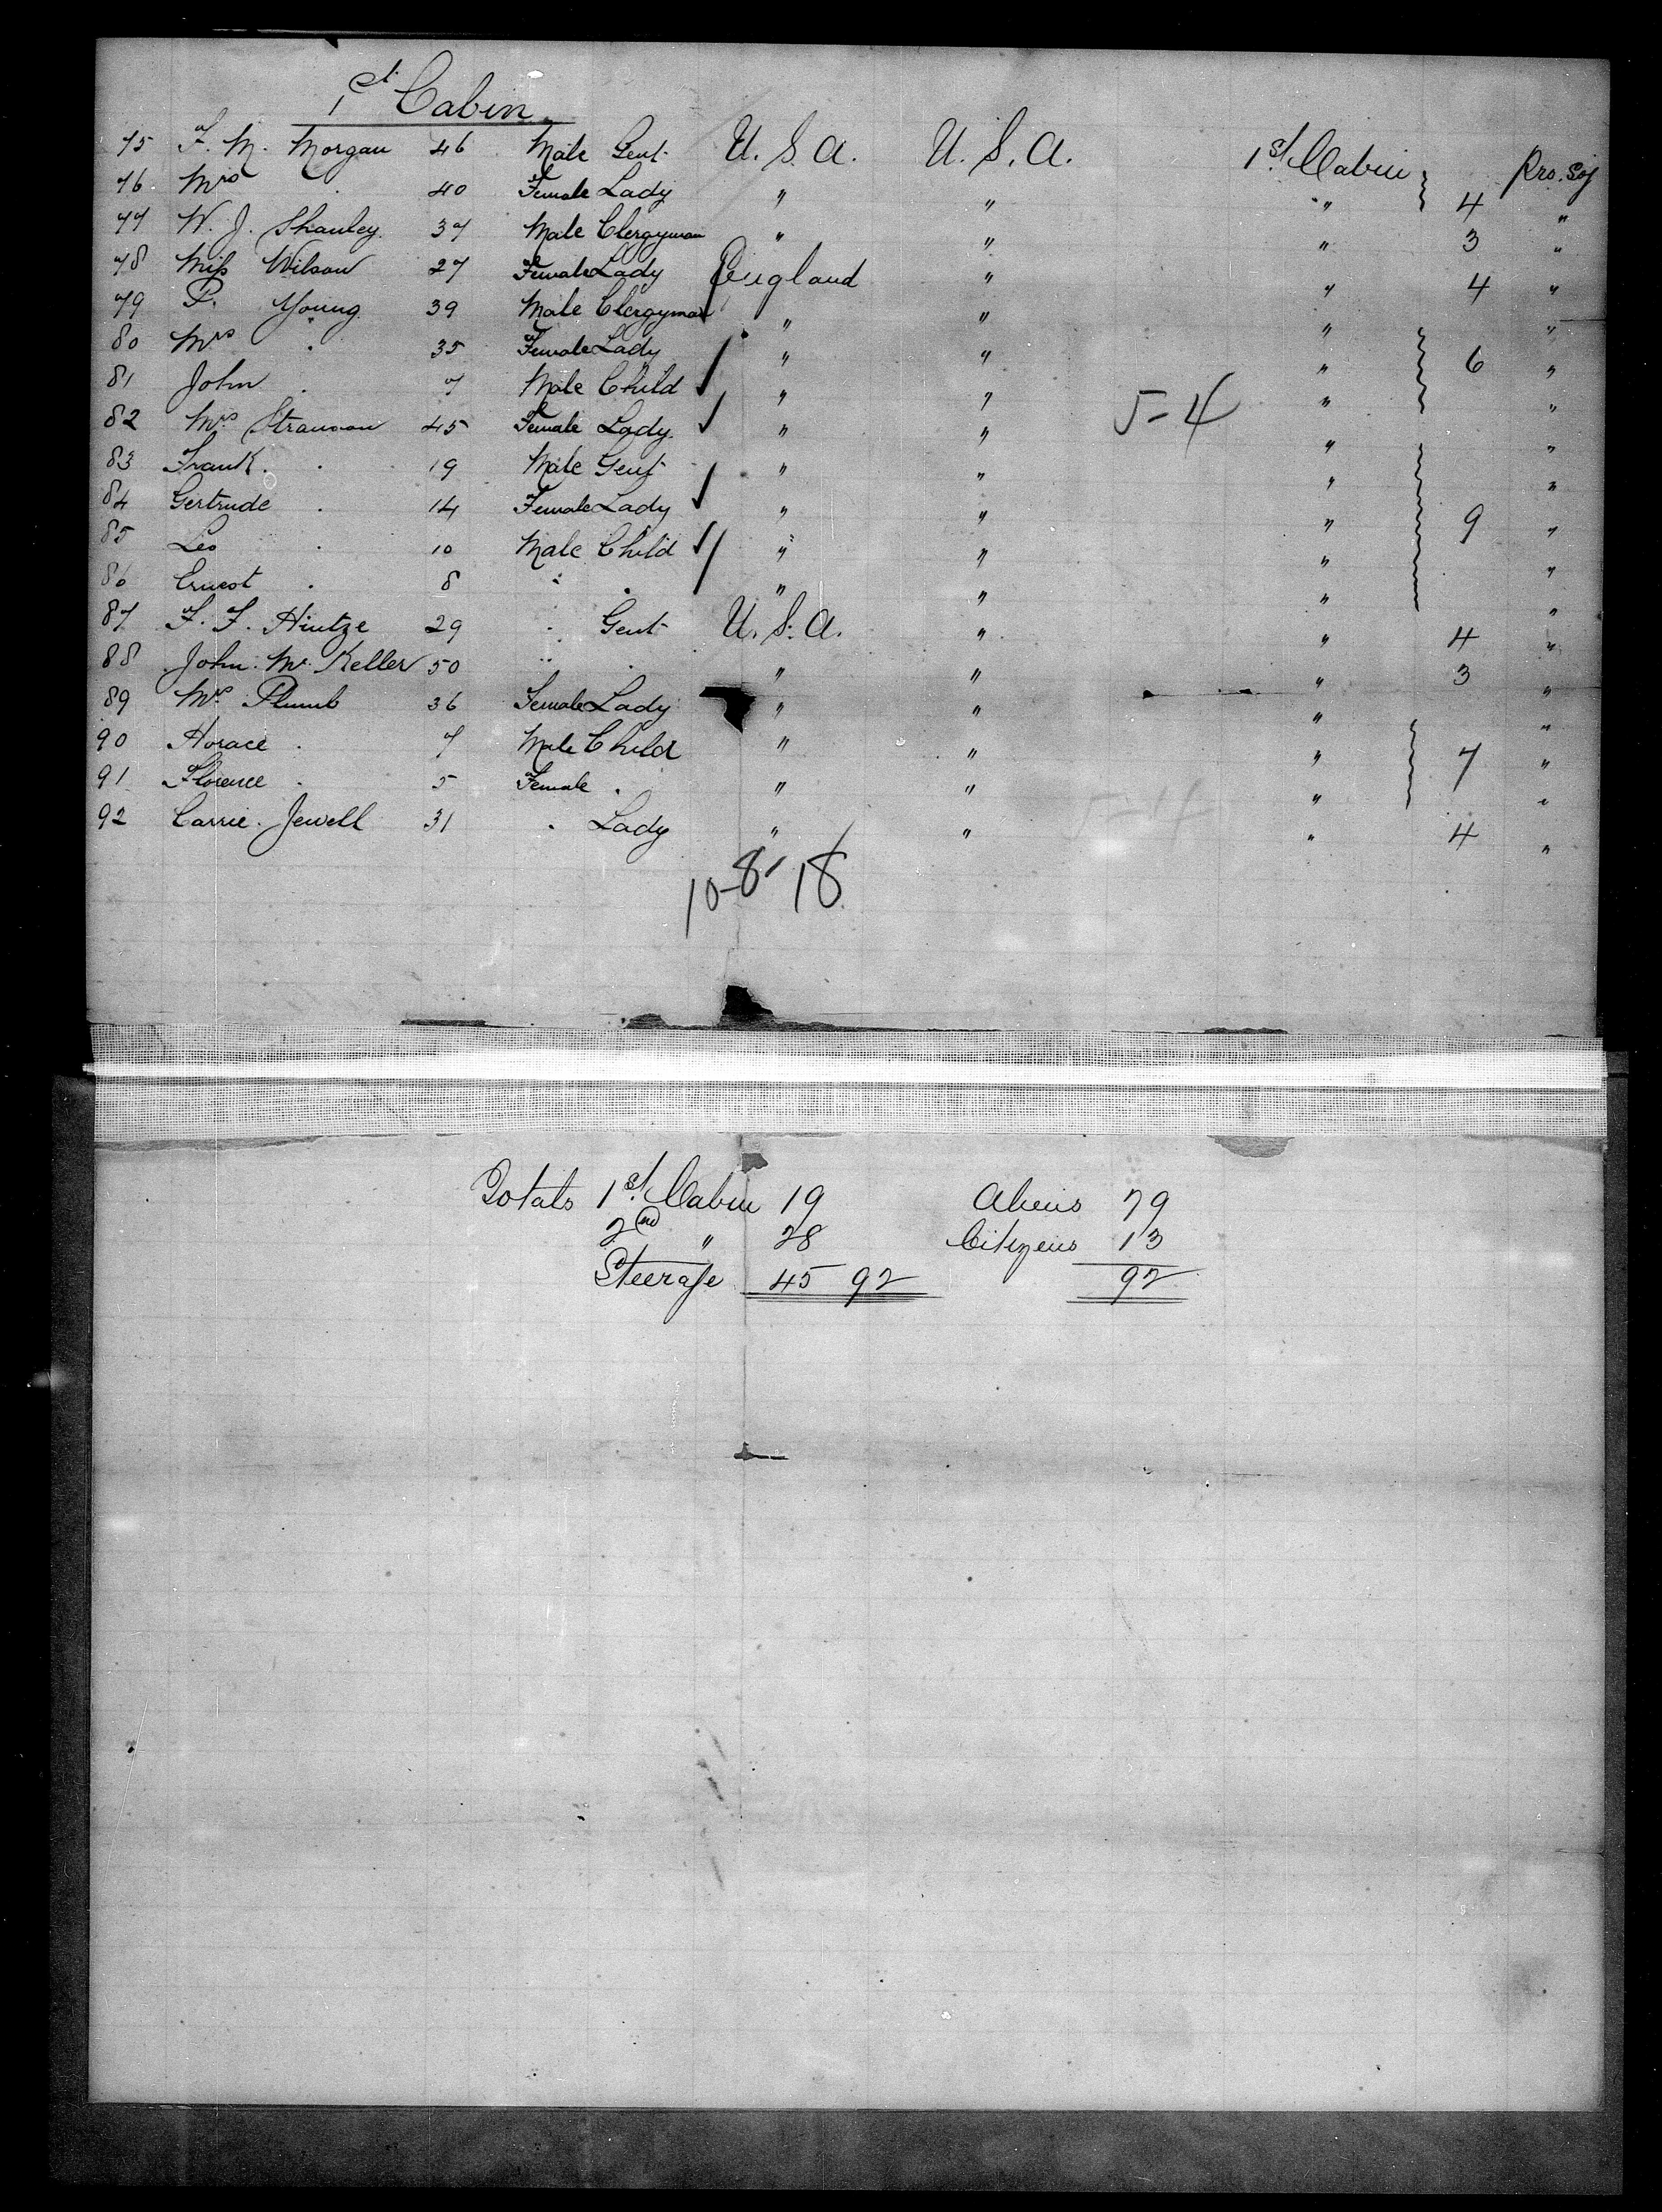 1st Cabin
75 F. M. Morgan 46 Male Gent U. S. A. U. S. A. 1st Cabin Pro. Soj
76 Mrs . 40 Female Lady " " " 4 "
77 W. J. Shanley 37 Male Clergyman " " " 3 "
78 Miss Wilson 27 Female Lady England " " 4 "
79 P. Young 39 Male Clergyman " " " "
80 Mrs . 35 Female Lady " " " 6 "
81 John . 7 Male Child " " " "
82 Mrs 45 Female Lady " " " "
83 Frank . 19 Male Gent " " " "
84 Gertrude . 14 Female Lady " " " 9 "
85 Leo . 10 Male Child " " " "
86 Ernest . 8 " . " " " "
87 F. F. Hintze 29 . Gent U. S. A. " " 4 "
88 John Mc Keller 50 " . " " " 3 "
89 Mrs Plumb 36 Female Lady " " " "
90 Horace . 7 Male Child " " " 7 "
91 Florence . 5 Female . " " " "
92 Carrie Jewell 31 . Lady " " " 4 "
5-4
5-14
10-8-18
Totals 1st Cabin 19 Aliens 79
2nd " 28 Citizens 13
Steerage 45 92 92